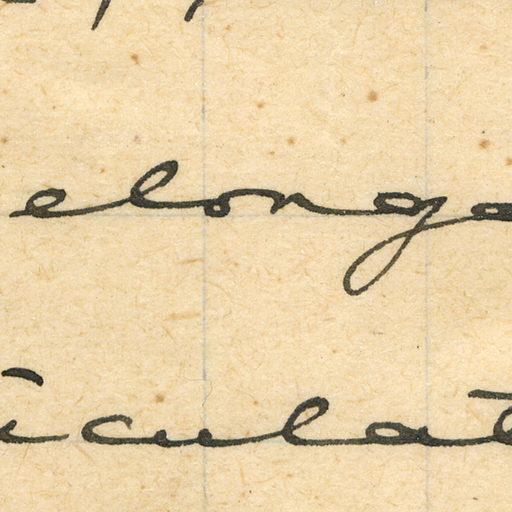 elonga
iculat